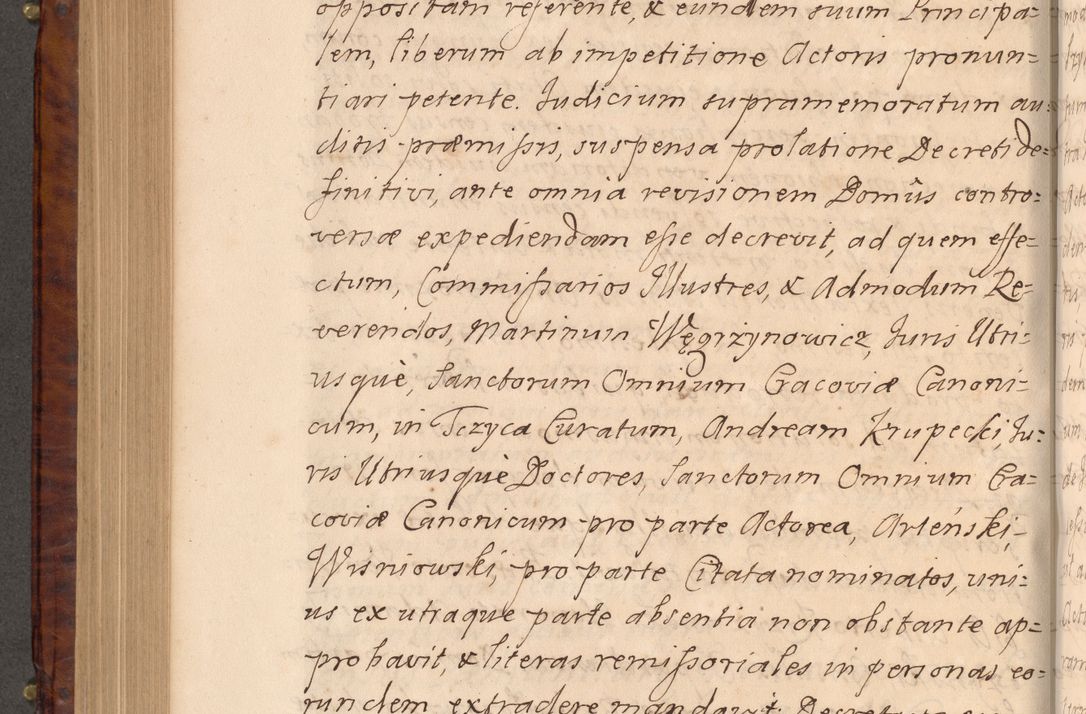 oppositam referente, & eundem suum Principa=
lem, liberum ab impetitione Actoris pronun=
tiari petente. Iudicium supramemoratum au=
ditis præmissis, suspensa prolatione Decreti de=
finitivi, ante omnia revisionem Domûs contro=
versæ expediendam esse decrevit, ad quem effe=
ctum, Commissarios Illustres, & Admodum Re=
verendos, Martinum Węgrzynowicz, Iuris Utri=
usquè, Sanctorum Omnium Cracoviæ Canoni=
cum, in Tczyca Curatum, Andream Krupecki, Iu=
ris Utriusquè Doctores, Sanctorum Omnium Cra=
coviæ Canonicum pro parte Actorea, Arleński,
Wisniowski, pro parte Citata nominatos, uni=
us ex utraque parte absentia non obstante ap=
probavit, & literas remissoriales in personas eo=
rundem extradere mandavit.